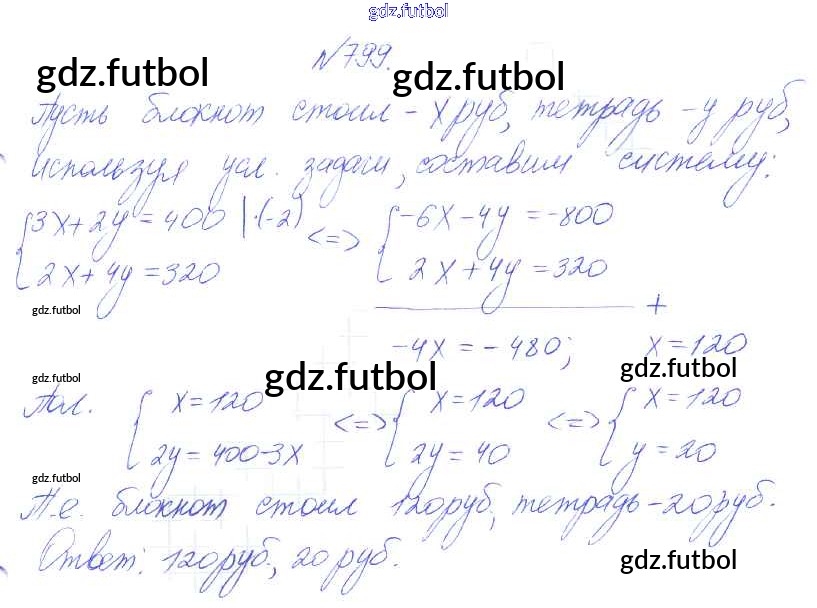 gdz.futbol
N799.
gdz.futbol gdz.futbol
Пусть блокнот стоил - x руб, тетрадь - y руб,
используя усл. задачи, составим систему:
{3x+2y=400 |·(-2) <=> {-6x-4y=-800
{2x+4y=320 {2x+4y=320
gdz.futbol
+
-4x=-480; x=120
gdz.futbol gdz.futbol gdz.futbol
Пол. {x=120 <=> {x=120 <=> {x=120
{2y=400-3x {2y=40 {y=20
gdz.futbol
Т.е. блокнот стоил 120руб, тетрадь-20руб.
Ответ: 120руб., 20 руб.
gdz.futbol